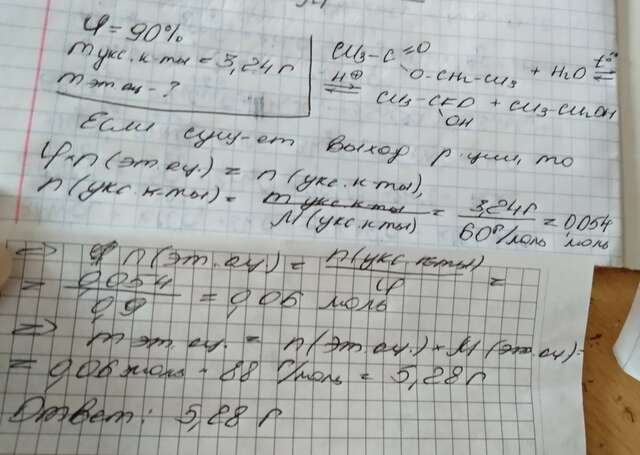 φ = 90%
m укс. к-ты = 3,24 г
m эт ац - ?
CH3-C=O
O-CH2-CH3 + H2O ⇌ t°
H⊕ ⇌ CH3-C=O + CH3-CH2OH
OH
Если сущ-ет выход р-ции, то
φ·n(эт.ац.) = n(укс.к-ты),
n(укс.к-ты) = m укс к-ты / M(укс.к-ты) = 3,24г / 60 г/моль = 0,054 моль
=> n(эт.ац) = n(укс.к-ты) / φ =
= 0,054 / 0,9 = 0,06 моль
=> m эт.ац. = n(эт.ац.) * M(эт.ац) =
= 0,06 моль · 88 г/моль = 5,28 г
Ответ: 5,28 г